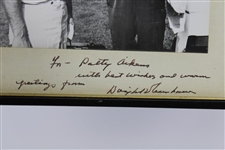 For - Patty Aikens
with best wishes and warm
greetings from
Dwight D Eisenhower